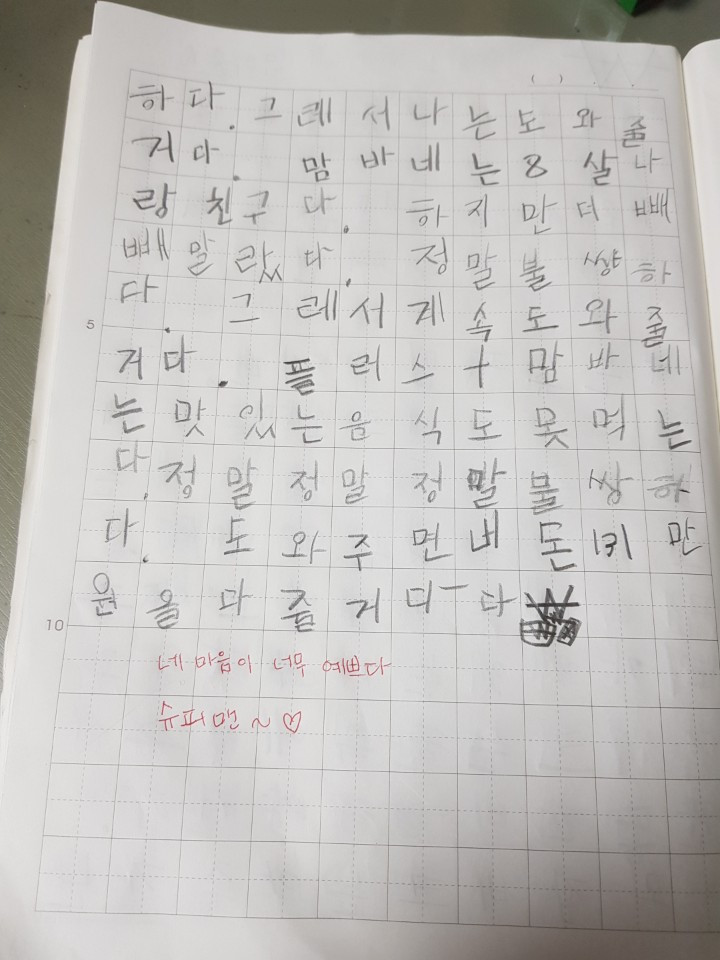 ( ) . .
하다. 그레서 나는 도와줄
거다. 맘바네는 8살 나
랑 친구다. 하지만 더 빼
빼 말랐다. 정말 불쌍하
다. 그레서 게속 도와줄
5
거다. 플러스 + 맘바네
는 맛있는 음식도 못 먹는
다. 정말 정말 정말 불쌍하
다. 도와주면 내 돈 131만
원을 다 줄거디ㅡ다
10
네 마음이 너무 예쁘다
슈퍼맨~♡